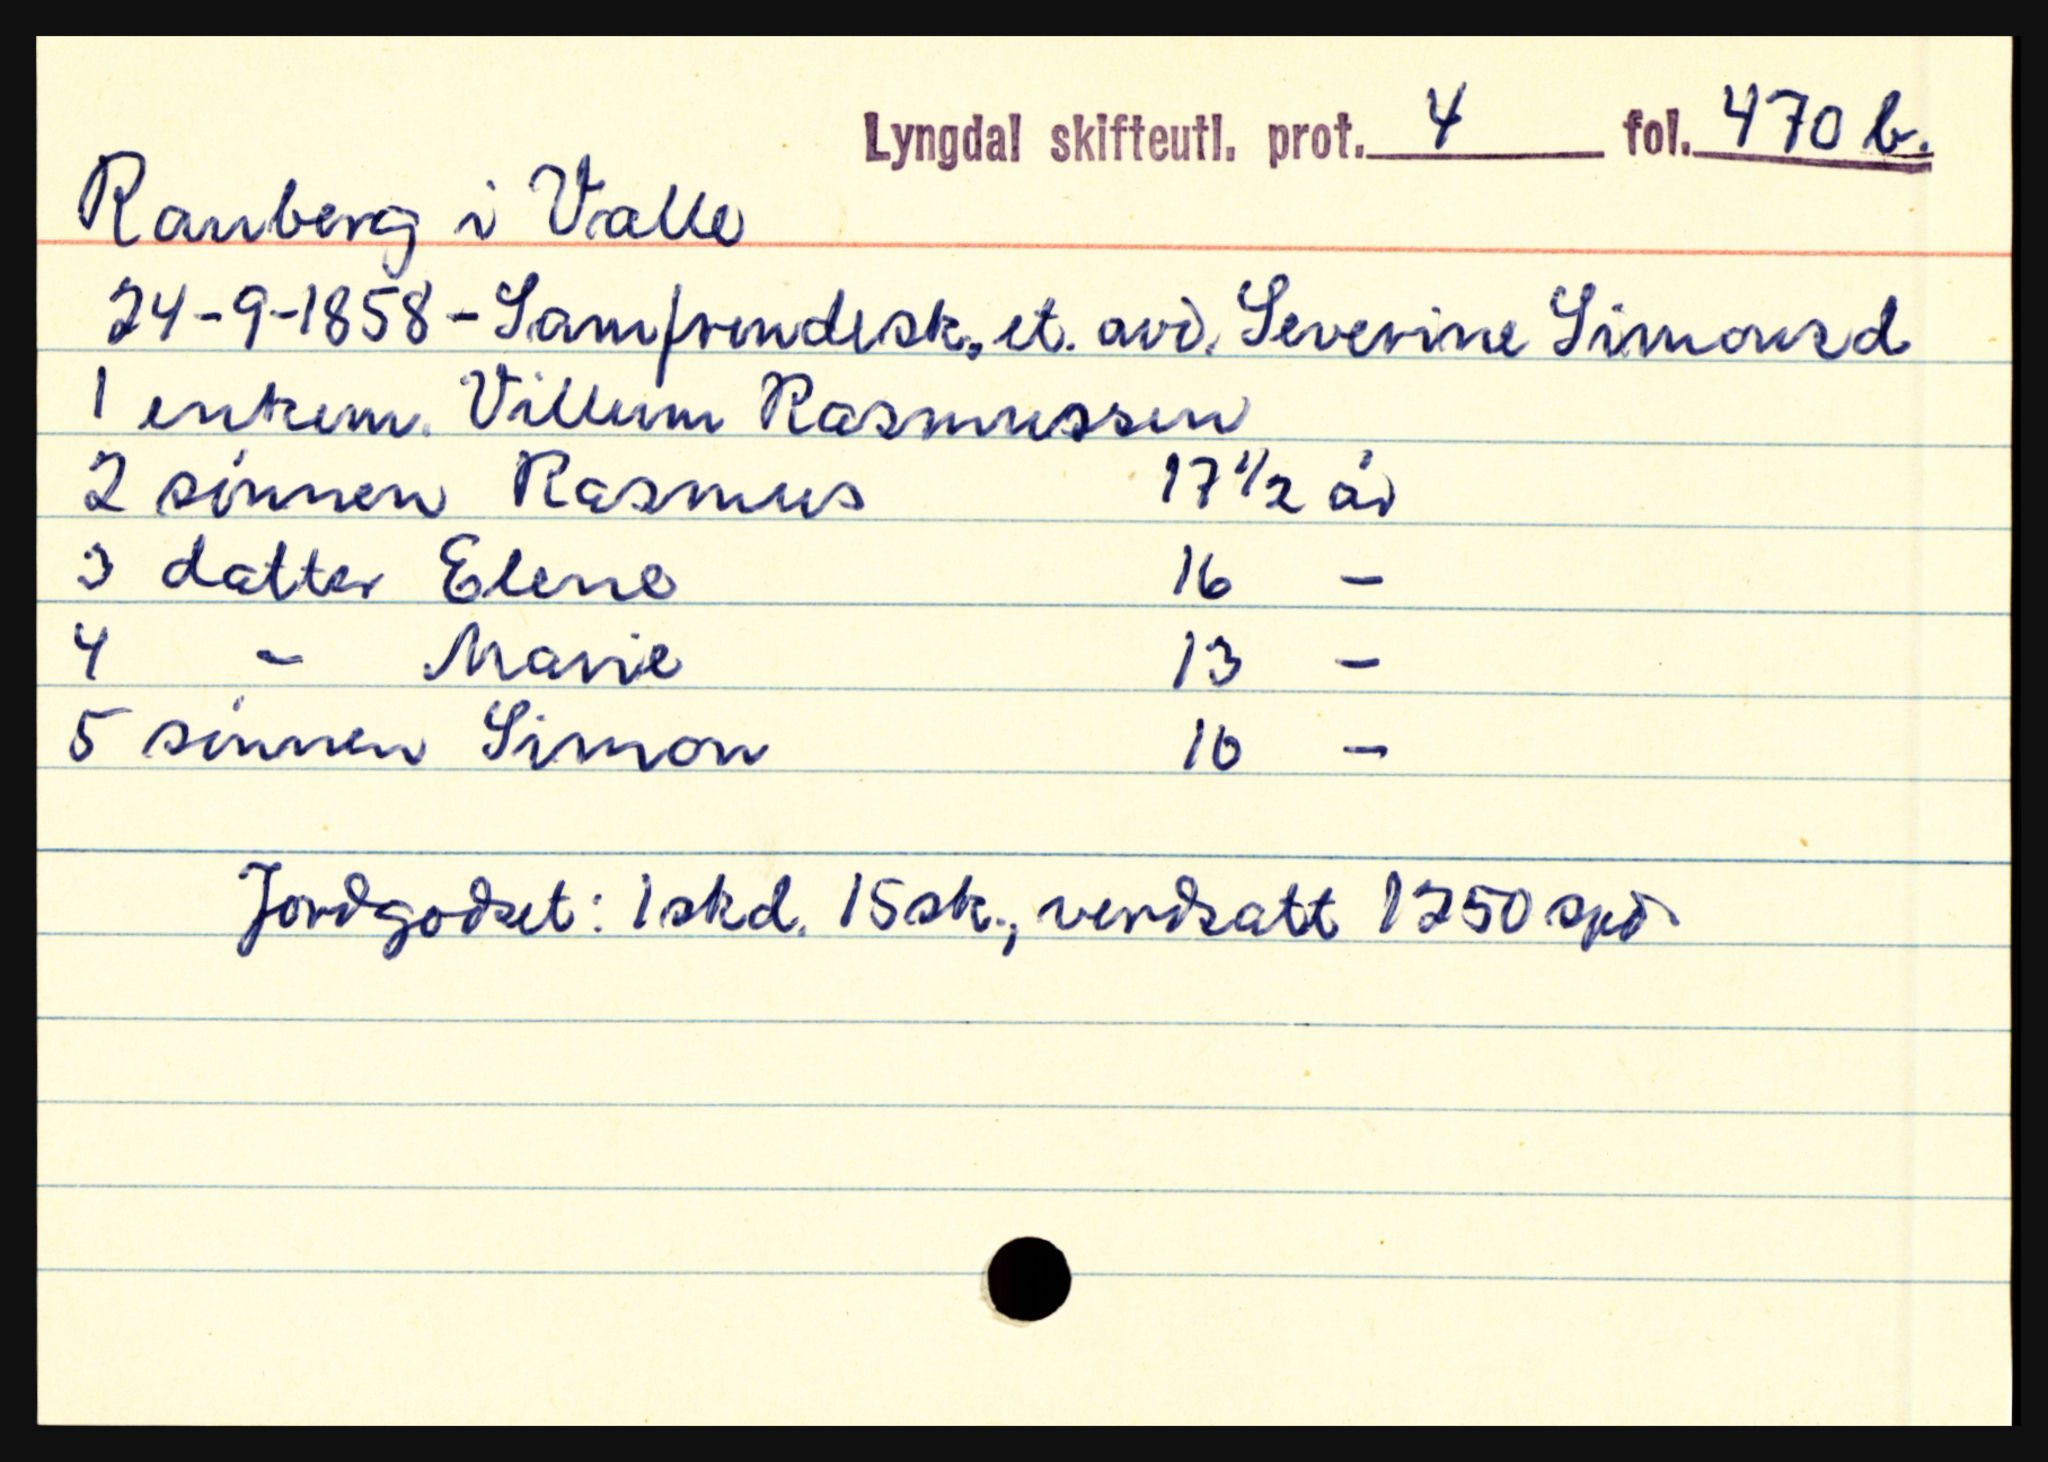 Lyngdal skifteutl. prot. 4 fol. 470 b.
Rauberg i Valle
24-9-1858 - Samfrendesk. et. avd. Severine Simonsd
1 enkem. Villum Rasmussen
2 sønnen Rasmus 17 1/2 år
3 datter Elene 16 -
4 - Marie 13 -
5 sønnen Simon 10 -
Jordgodset: 1 skd. 15 sk., verdsatt 1250 spd.